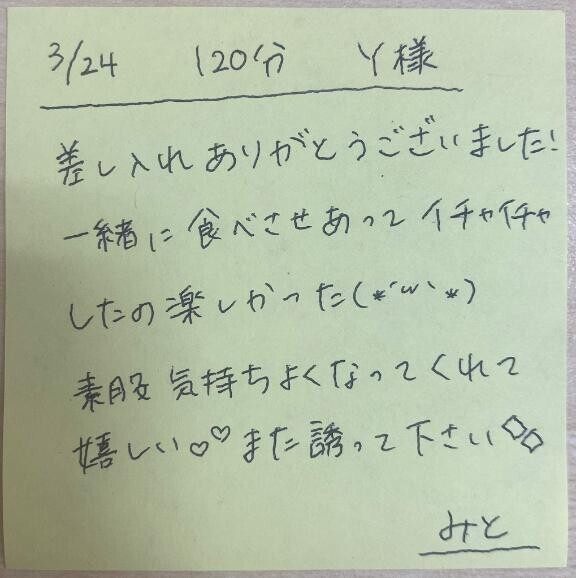 3/24 120分 Y様
差し入れありがとうございました!
一緒に食べさせあってイチャイチャ
したの楽しかった(*´ω`*)
素股気持ちよくなってくれて
嬉しい♡♡また誘って下さい
みと